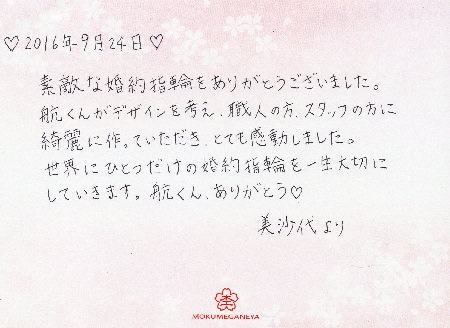 ♡2016年9月24日♡
素敵な婚約指輪をありがとうございました。
航くんがデザインを考え、職人の方、スタッフの方に
綺麗に作っていただき、とても感動しました。
世界にひとつだけの婚約指輪を一生大切に
していきます。航くん、ありがとう♡
美沙代より
MOKUMEGANEYA